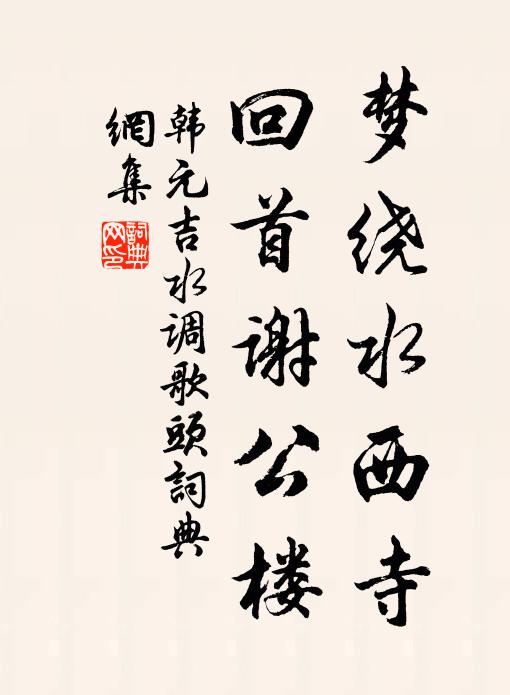 梦绕水西寺
回首谢公楼
韩元吉水调歌頭詞典
網集
詞典网印